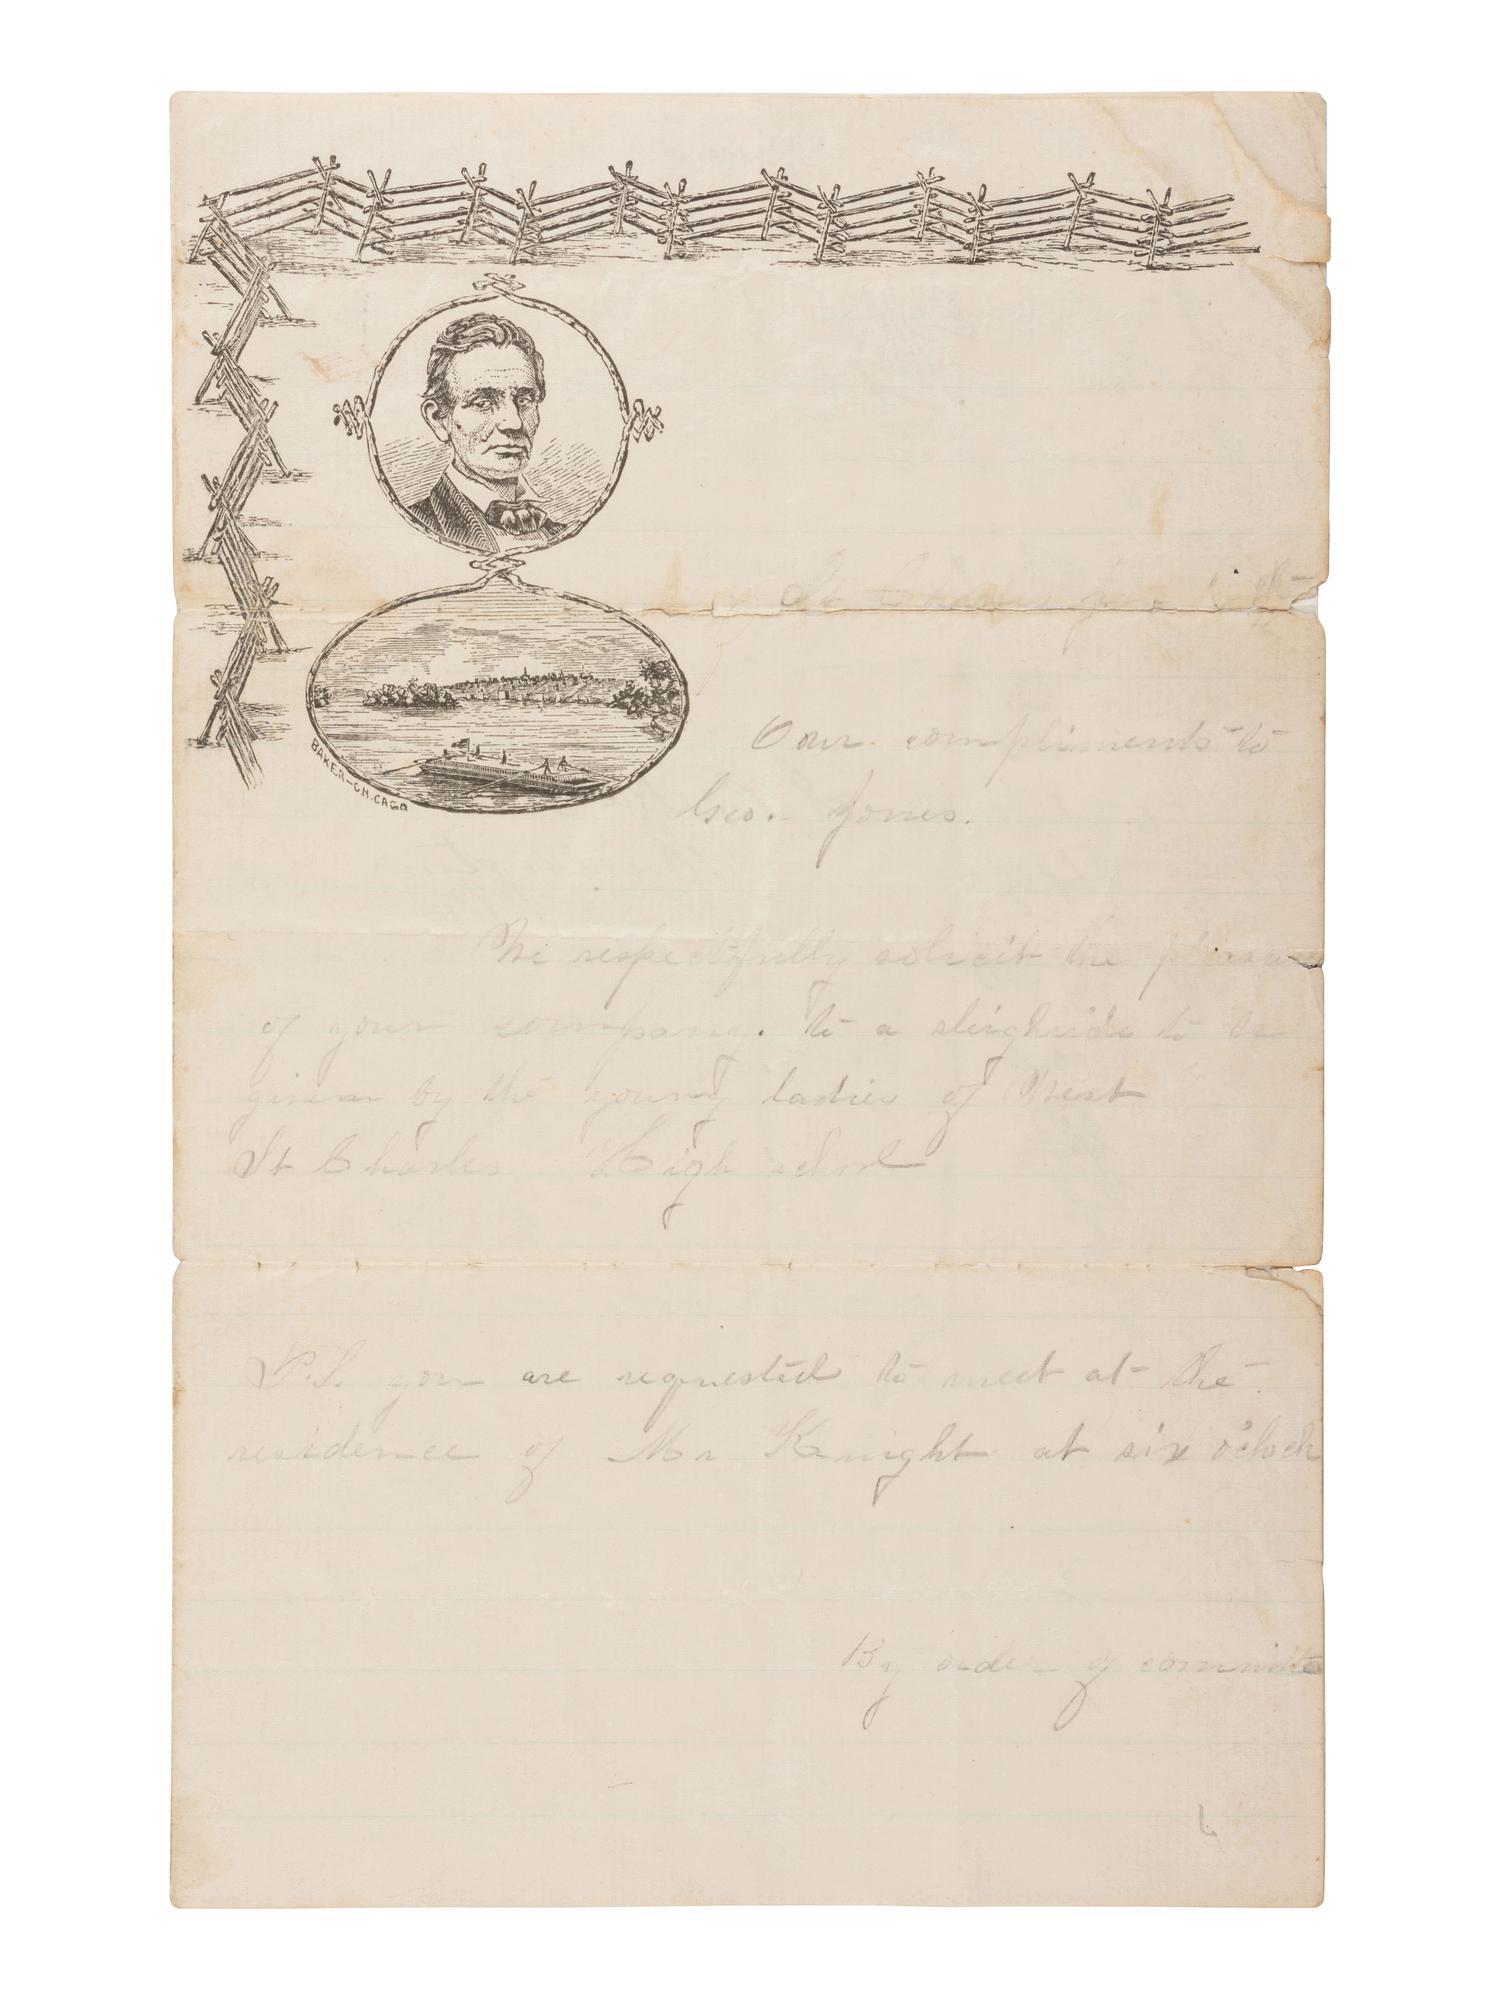 BAKER-CHICAGO
St Charles Jan
Our compliments to
Geo. Jones.
We respectfully solicit the pleasure
of your company. to a sleighride to be
given by the young ladies of West
St Charles High school
P.S. you are requested to meet at the
residence of Mr Knight at six o'clock
By order of committe